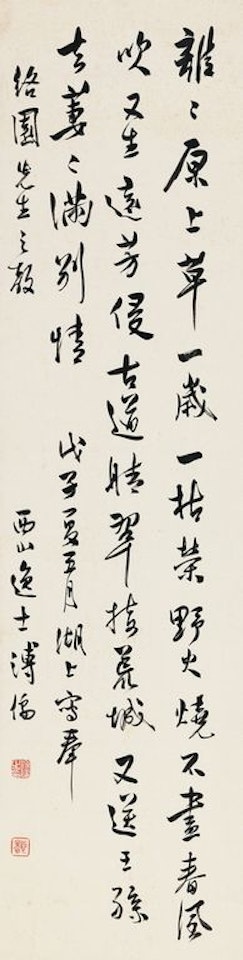 離〻原上草一歲一枯榮野火燒不盡春風
吹又生遠芳侵古道晴翠接荒城又送王孫
去萋〻滿別情
戊子夏五月湖上寫奉
絡園先生之教
西山逸士溥儒